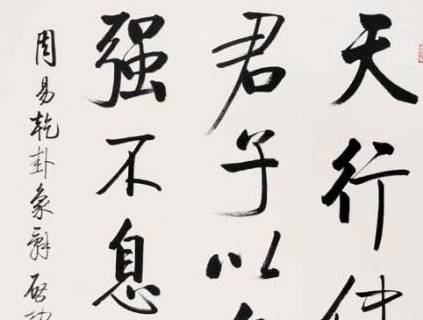 天行健
君子以
强不息
周易乾卦象辞 启功